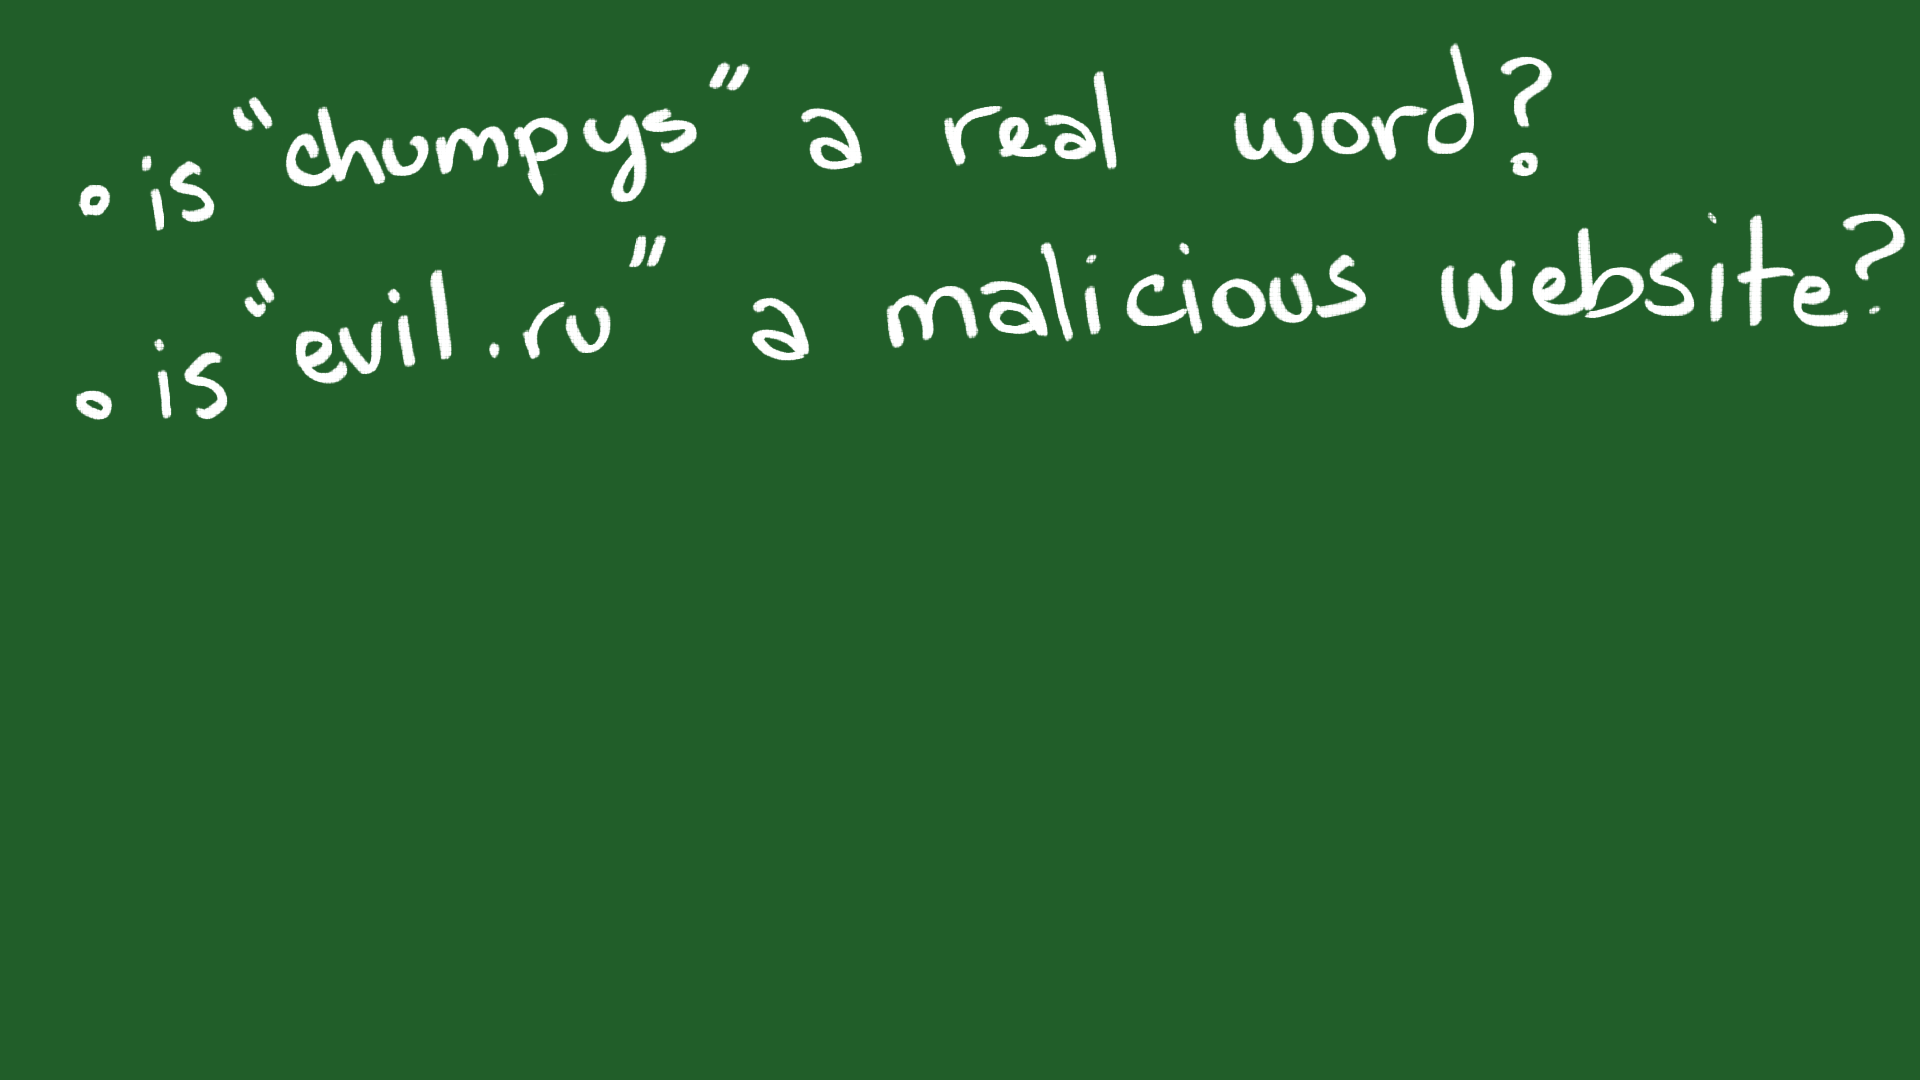 ◦ is "chumpys" a real word?
◦ is "evil.ru" a malicious website?